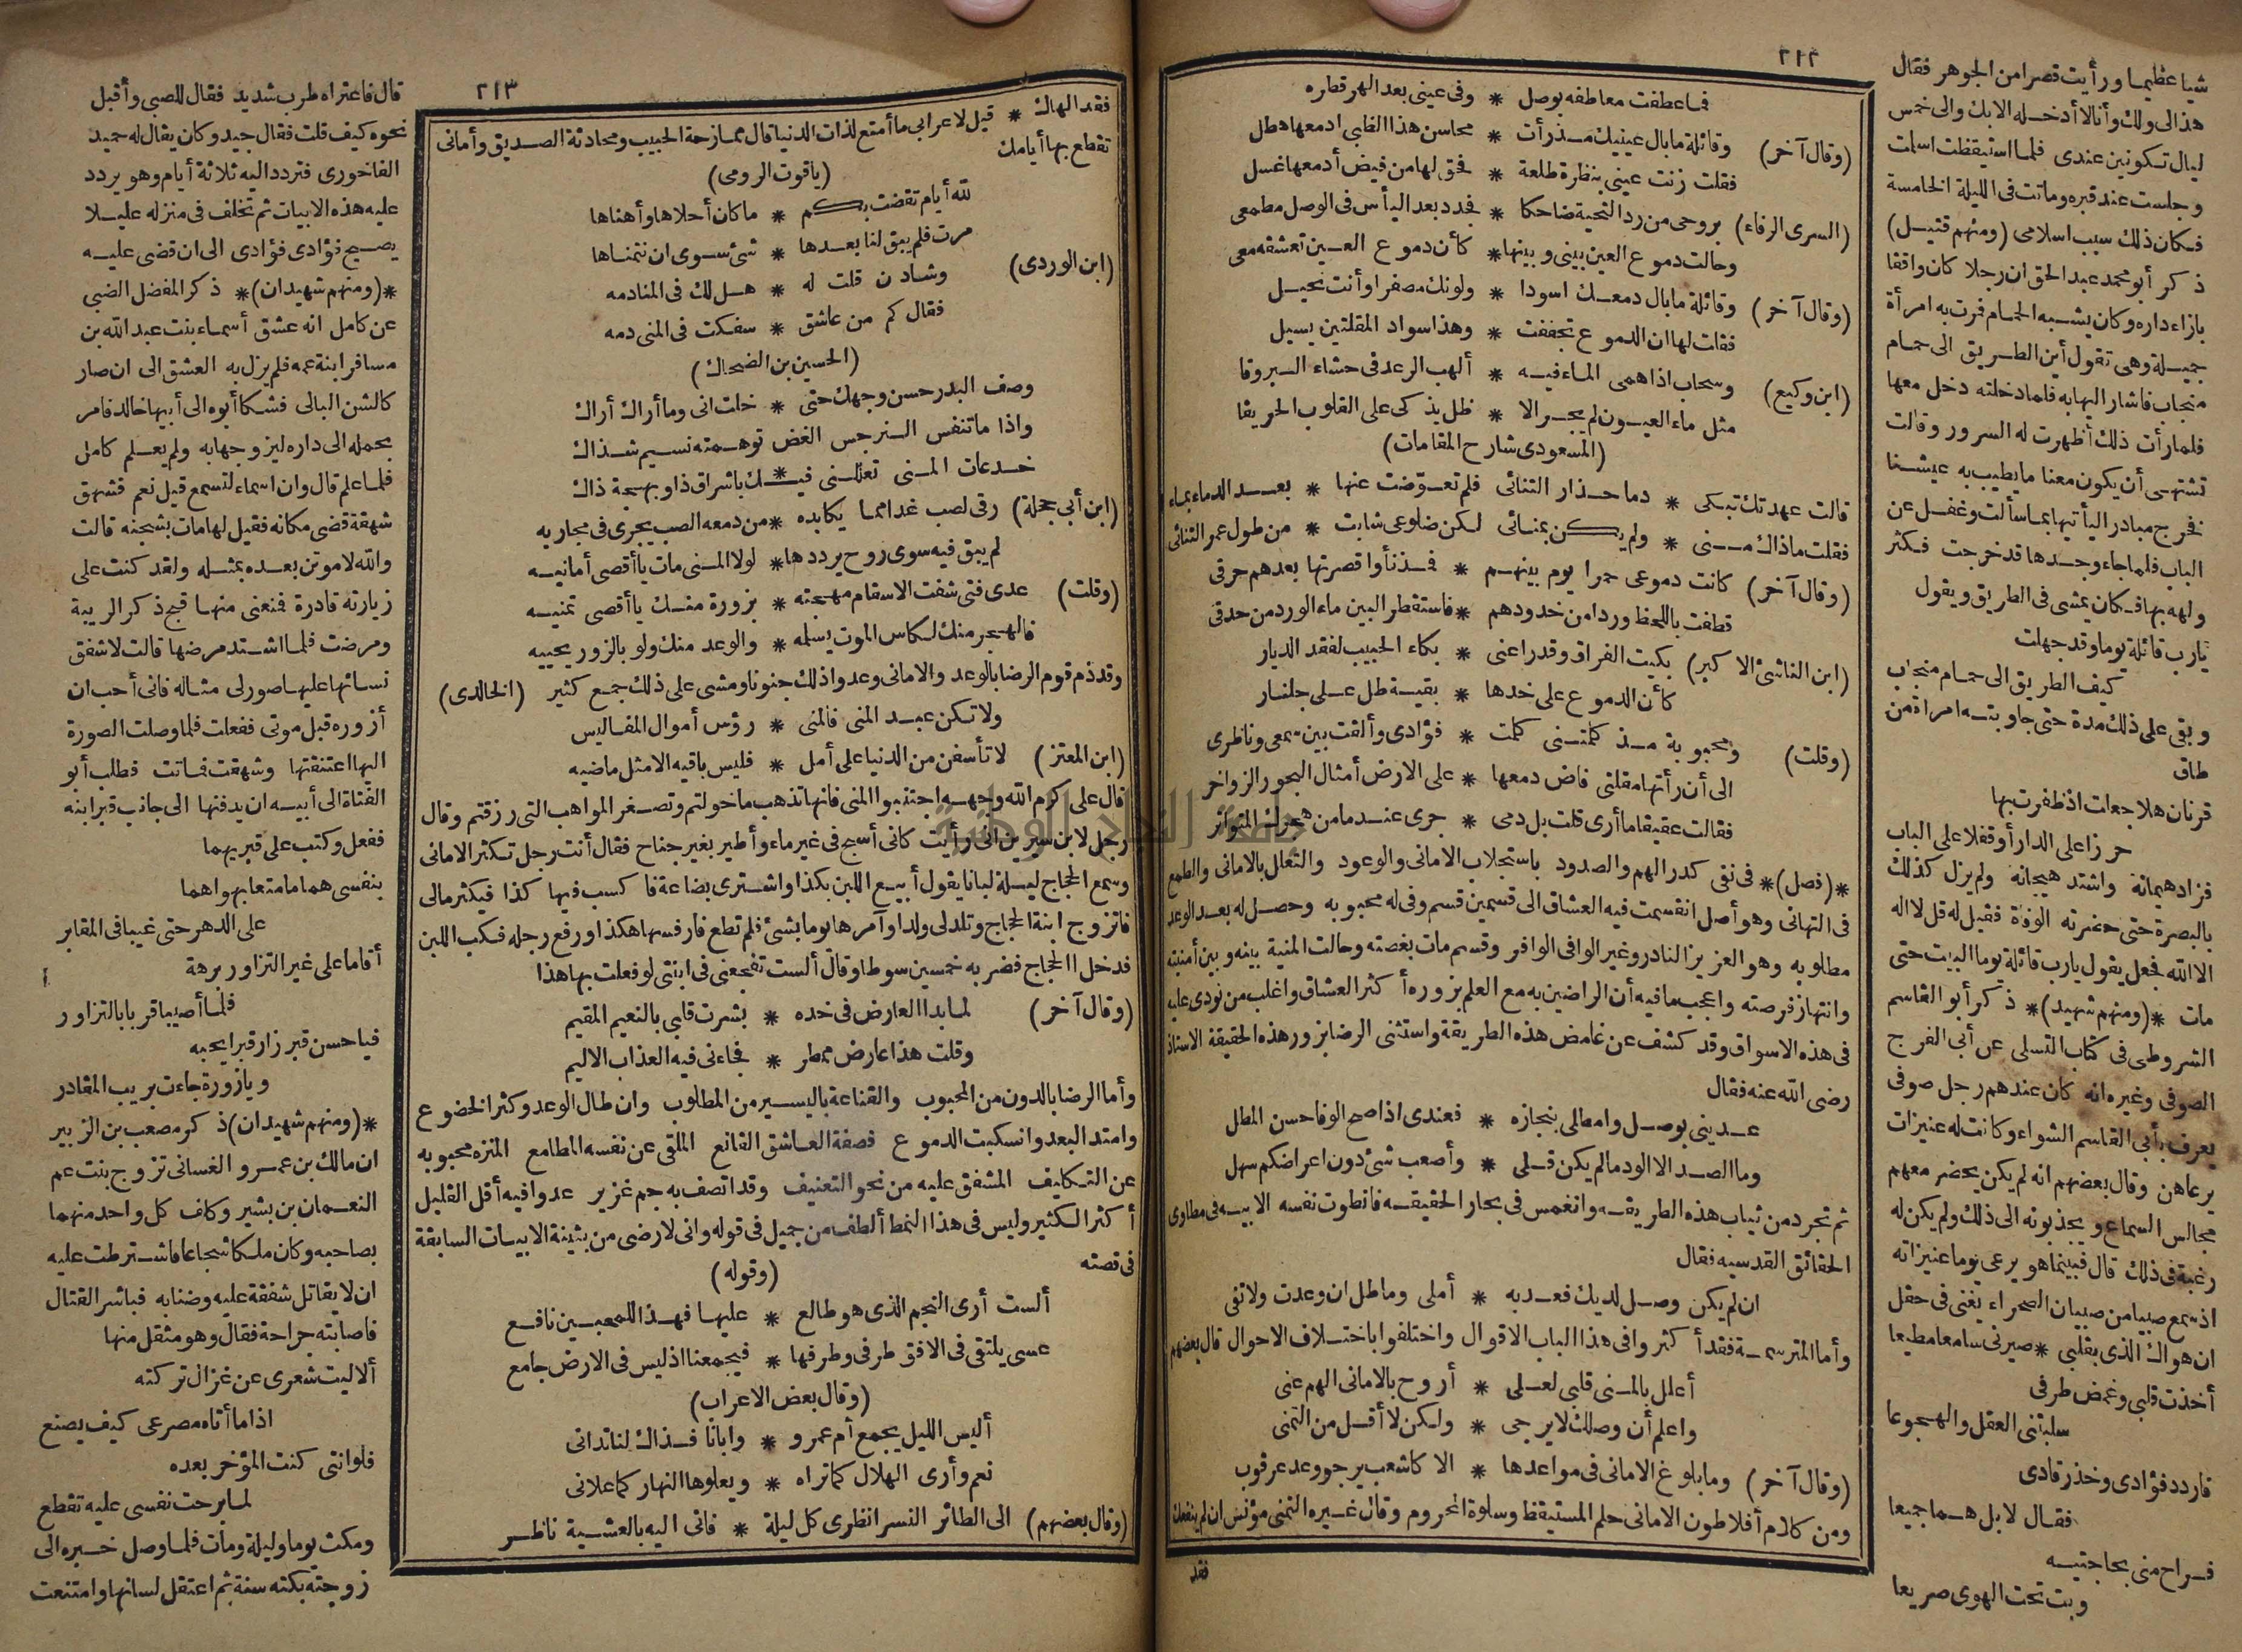 ٢١٢
فما عطفت معاطفه بوصل * وفى عينى بعد الهر قطاره
(وقال آخر) وقائلة ما بال عينيك مذ رأت * محاسن هذا الظبى ادمعها هطل
فقلت زنت عينى بنظرة طلعة * فحق لها من فيض أدمعها غسل
(السرى الرفاء) بروحى من رد التحية ضاحكا * فجدد بعد اليأس فى الوصل مطمعى
وحالت دموع العين بينى وبينها * كأن دموع العين تعشقه معى
(وقال آخر) وقائلة ما بال دمعك اسودا * ولونك مصفرا وأنت نحيل
فقلت لها ان الدموع تجففت * وهذا سواد المقلتين يسيل
(ابن وكيع) وسحاب اذا همى الماء فيه * ألهب الرعد فى حشاه البروقا
مثل ماء العيون لم يجر الا * ظل يذكى على القلوب الحريقا
(المسعودى شارح المقامات)
قالت عهدتك تبكى * دما حذار التنائى فلم تعوّضت عنها * بعد الدماء بماء
فقلت ما ذاك منى * ولم يكن بمنائى لكن ضلوعى شابت * من طول عمر التنائى
(وقال آخر) كانت دموعى حمرا يوم بينهم * فذ نأوا قصرتها بعدهم حرقى
قطفت باللحظ وردا من خدودهم * فاستقطر البين ماء الورد من حدقى
(ابن الناشئ الاكبر) بكيت الفراق وقد راعنى * بكاء الحبيب لفقد الديار
كأن الدموع على خدها * بقية طل على جلنار
(وقلت) ومحبوبة مذ كلمتنى كلمت * فؤادى وألقت بين سمعى وناظرى
الى أن رأتها مقلتى فاض دمعها * على الارض أمثال البحور الزواخر
فقالت عقيقا ما أرى قلت بل دمى * جرى عندما من هجرك المتواتر
*(فصل)* فى نفى كدر الهم والصدود باستجلاب الامانى والوعود والتعلل بالامانى والطمع
فى التهانى وهو أصل انقسمت فيه العشاق الى قسمين قسم وفى له محبوبه وحصل له بعد الوعد
مطلوبه وهو العزيز النادر وغير الوافى الوافر وقسم مات بغصته وحالت المنية بينه وبين أمنيته
وانتهاز فرصته واعجب ما فيه أن الراضين به مع العلم بزوره أكثر العشاق واغلب من نودى عليه
فى هذه الاسواق وقد كشف عن غامض هذه الطريقة واستثنى الرضا بزور هذه الحقيقة الاستاذ
رضى الله عنه فقال
عدينى بوصل وامطلى بنجازه * فعندى اذا صح الوفا حسن المطل
وما الصد الا الود ما لم يكن قلى * وأصعب شئ دون اعراضكم سهل
ثم تجرد من ثياب هذه الطريقه وانغمس فى بحار الحقيقه فانطوت نفسه الابيه فى مطاوى
الحقائق القدسيه فقال
ان لم يكن وصل لديك فعد به * أملى وماطل ان وعدت ولا تفى
وأما المترسمة فقد أكثروا فى هذا الباب الاقوال واختلفوا باختلاف الاحوال قال بعضهم
أعلل بالمنى قلبى لعلى * أروح بالامانى الهم عنى
واعلم أن وصلك لا يرجى * ولكن لا أقل من التمنى
(وقال آخر) وما بلوغ الامانى فى مواعدها * الا كاشعب يرجو وعد عرقوب
ومن كلام أفلاطون الامانى حلم المستيقظ وسلوة المحروم وقال غيره التمنى مؤنس ان لم ينفعك
فقد
شيأ عظيما ورأيت قصرا من الجوهر فقال
هذا لى ولك وأنا لا أدخله الا بك والى خمس
ليال تكونين عندى فلما استيقظت اسلمت
وجلست عند قبره وماتت فى الليلة الخامسة
فكان ذلك سبب اسلامى (ومنهم قتيل)
ذكر أبو محمد عبد الحق ان رجلا كان واقفا
بازاء داره وكان يشبه الحمام فمرت به امرأة
جميلة وهى تقول أين الطريق الى حمام
منجاب فاشار اليها به فلما دخلته دخل معها
فلما رأت ذلك أظهرت له السرور وقالت
تشتهى أن يكون معنا ما يطيب به عيشنا
فخرج مبادرا ليأتيها بما سألت وغفل عن
الباب فلما جاء وجدها قد خرجت فكثر
ولهه بها فكان يمشى فى الطريق ويقول
يارب قائلة يوما وقد جهلت
كيف الطريق الى حمام منجاب
وبقى على ذلك مدة حتى جاوبته امرأة من
طاق
قرنان هلا جعلت اذ ظفرت بها
حرزا على الدار أو قفلا على الباب
فزاد هيمانه واشتد هيجانه ولم يزل كذلك
بالبصرة حتى حضرته الوفاة فقيل له قل لا اله
الا الله فجعل يقول يارب قائلة يوما البيت حتى
مات *(ومنهم شهيد)* ذكر أبو القاسم
الشروطى فى كتاب التسلى عن أبى الفرج
الصوفى وغيره انه كان عندهم رجل صوفى
يعرف بأبى القاسم الشواء وكانت له عنيزات
يرعاهن وقال بعضهم انه لم يكن يحضر معهم
مجالس السماع ويجذبونه الى ذلك ولم يكن له
رغبة فى ذلك قال فبينما هو يرعى يوما عنيزاته
اذ سمع صبيا من صبيان الصحراء يغنى فى حقل
ان هواك الذى بقلبى * صيرنى سامعا مطيعا
أخذت قلبى وغمض طرفى
سلبتنى العقل والهجوعا
فاردد فؤادى وخذ رقادى
فقال لا بل هما جميعا
فراح منى بحاجتيه
وبت تحت الهوى صريعا
٢١٣
فقد الهاك * قيل لاعرابى ما أمتع لذات الدنيا قال ممازحة الحبيب ومحادثة الصديق وأمانى
تقطع بها أيامك
(ياقوت الرومى)
لله أيام تقضت بكم * ما كان أحلاها وأهناها
مرت فلم يبق لنا بعدها * شئ سوى ان نتمناها
(ابن الوردى) وشادن قلت له * هل لك فى المنادمه
فقال كم من عاشق * سفكت فى المنى دمه
(الحسين بن الضحاك)
وصف البدر حسن وجهك حتى * خلت انى وما أراك أراك
واذا ما تنفس النرجس الغض توهمته نسيم شذاك
خدعات المنى تعللنى فيك باشراق ذا وبهجة ذاك
(ابن أبى حجلة) رقى لصب غدا مما يكابده * من دمعه الصب يجرى فى مجاريه
لم يبق فيه سوى روح يرددها * لولا المنى مات يا أقصى أمانيه
(وقلت) عدى فتى شفت الاسقام مهجته * بزورة منك يا أقصى تمنيه
فالهجر منك لكاس الموت يسلمه * والوعد منك ولو بالزور يحييه
وقد ذم قوم الرضا بالوعد والامانى وعدوا ذلك جنونا ومشى على ذلك جمع كثير (الخالدى)
ولا تكن عبد المنى فالمنى * رؤس أموال المفاليس
(ابن المعتز) لا تأسفن من الدنيا على أمل * فليس باقيه الا مثل ماضيه
قال على كرم الله وجهه اجتنبوا المنى فانها تذهب ما خولتم وتصغر المواهب التى رزقتم وقال
رجل لابن سيرين انى رأيت كانى أسبح فى غير ماء وأطير بغير جناح فقال أنت رجل تكثر الامانى
وسمع الحجاج ليلة لبانا يقول أبيع اللبن بكذا واشترى بضاعة فا كسب فيها كذا فيكثر مالى
فاتزوج ابنة الحجاج وتلد لى ولدا وآمرها يوما بشئ فلم تطع فارفسها هكذا ورفع رجله فكب اللبن
فدخل الحجاج فضربه خمسين سوطا وقال ألست تفجعنى فى ابنتى لو فعلت بها هذا
(وقال آخر) لما بدا العارض فى خده * بشرت قلبى بالنعيم المقيم
وقلت هذا عارض ممطر * فجاءنى فيه العذاب الاليم
وأما الرضا بالدون من المحبوب والقناعة باليسير من المطلوب وان طال الوعد وكثر الخضوع
وامتد البعد وانسكبت الدموع فصفة العاشق القانع الملقى عن نفسه المطامع المنزه محبوبه
عن التكاليف المشفق عليه من نحو التعنيف وقد اتصف به جم غزير عدوا فيه أقل القليل
أكثر الكثير وليس فى هذا النمط ألطف من جميل فى قوله وانى لارضى من بثينة الابيات السابقة
فى قصته (وقوله)
ألست أرى النجم الذى هو طالع * عليها فهذا للمحبين نافع
عسى يلتقى فى الافق طرفى وطرفها * فيجمعنا اذ ليس فى الارض جامع
(وقال بعض الاعراب)
أليس الليل يجمع أم عمرو * وايانا فذاك لنا تدانى
نعم وأرى الهلال كما تراه * ويعلوها النهار كما علانى
(وقال بعضهم) الى الطائر النسر انظرى كل ليلة * فانى اليه بالعشية ناظر
قال فاعتراه طرب شديد فقال للصبى وأقبل
نحوه كيف قلت فقال جيد وكان يقال له حميد
الفاخورى فتردد اليه ثلاثة أيام وهو يردد
عليه هذه الابيات ثم تخلف فى منزله عليلا
يصيح فؤادى فؤادى الى ان قضى عليه
*(ومنهم شهيدان)* ذكر المفضل الضبى
عن كامل انه عشق أسماء بنت عبد الله بن
مسافر ابنة عمه فلم يزل به العشق الى ان صار
كالشن البالى فشكا أبوه الى أبيها خالد فامر
بحمله الى داره ليزوجها به ولم يعلم كامل
فلما علم قال وان اسماء لتسمع قيل نعم فشهق
شهقة قضى مكانه فقيل لها مات بشجنه قالت
والله لاموتن بعده بمثله ولقد كنت على
زيارته قادرة فمنعنى منها قبح ذكر الريبة
ومرضت فلما اشتد مرضها قالت لاشفق
نسائها عليها صورى لى مثاله فانى أحب ان
أزوره قبل موتى ففعلت فلما وصلت الصورة
اليها اعتنقتها وشهقت فماتت فطلب أبو
الفتاة الى أبيه ان يدفنها الى جانب قبر ابنه
ففعل وكتب على قبريهما
بنفسى هما ما متعا بهواهما
على الدهر حتى غيبا فى المقابر
أقاما على غير التزاور برهة
فلما أصيبا قربا بالتزاور
فيا حسن قبر زار قبرا يحبه
ويا زورة جاءت بريب المقادر
*(ومنهم شهيدان) ذكر مصعب بن الزبير
ان مالك بن عمرو الغسانى تزوج بنت عم
النعمان بن بشير وكلف كل واحد منهما
بصاحبه وكان ملكا شجاعا فاشترطت عليه
ان لا يقاتل شفقة عليه وضنا به فباشر القتال
فاصابته جراحة فقال وهو مثقل منها
ألا ليت شعرى عن غزال تركته
اذا ما أتاه مصرعى كيف يصنع
فلو اننى كنت المؤخر بعده
لما برحت نفسى عليه تقطع
ومكث يوما وليلة ومات فلما وصل خبره الى
زوجته بكته سنة ثم اعتقل لسانها وامتنعت